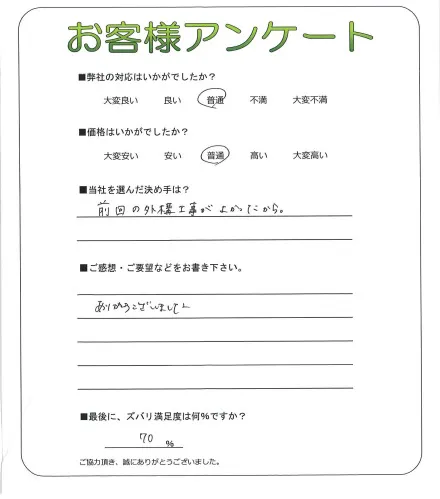 お客様アンケート
■弊社の対応はいかがでしたか？
大変良い 良い 普通 不満 大変不満
■価格はいかがでしたか？
大変安い 安い 普通 高い 大変高い
■当社を選んだ決め手は？
前回の外構工事がよかったから。
■ご感想・ご要望などをお書き下さい。
ありがとうございました
■最後に、ズバリ満足度は何％ですか？
70 ％
ご協力頂き、誠にありがとうございました。